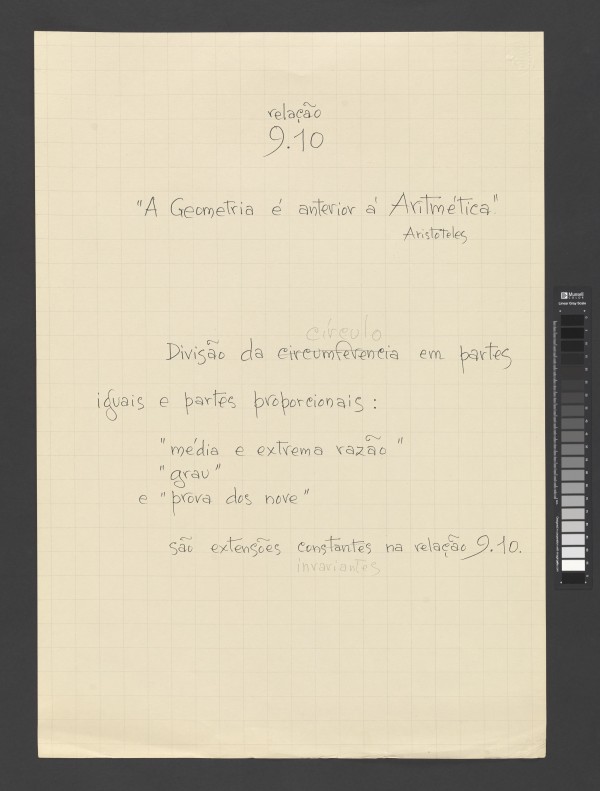 relação
9.10
"A Geometria é anterior á Aritmética".
Aristoteles
círculo
Divisão da circumferencia em partes
iguais e partes proporcionais :
"média e extrema razão"
"grau"
e "prova dos nove"
são extensões constantes na relação 9.10.
invariantes